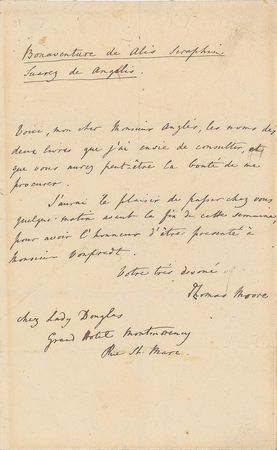 Bonaventure de Alis Seraphin.
Suarez de Angelis.
Voici, mon cher Monsieur Anglès, les noms des
deux livres que j'ai envie de consulter, et
que vous aurez peut-être la bonté de me
procurer.
J'aurai le plaisir de passer chez vous
quelque matin avant la fin de cette semaine,
pour avoir l'honneur d'être présenté à
Monsieur
Votre très devoué
Thomas Moore
chez Lady Douglas
Grand Hotel Montmorency
Rue St. Marc.